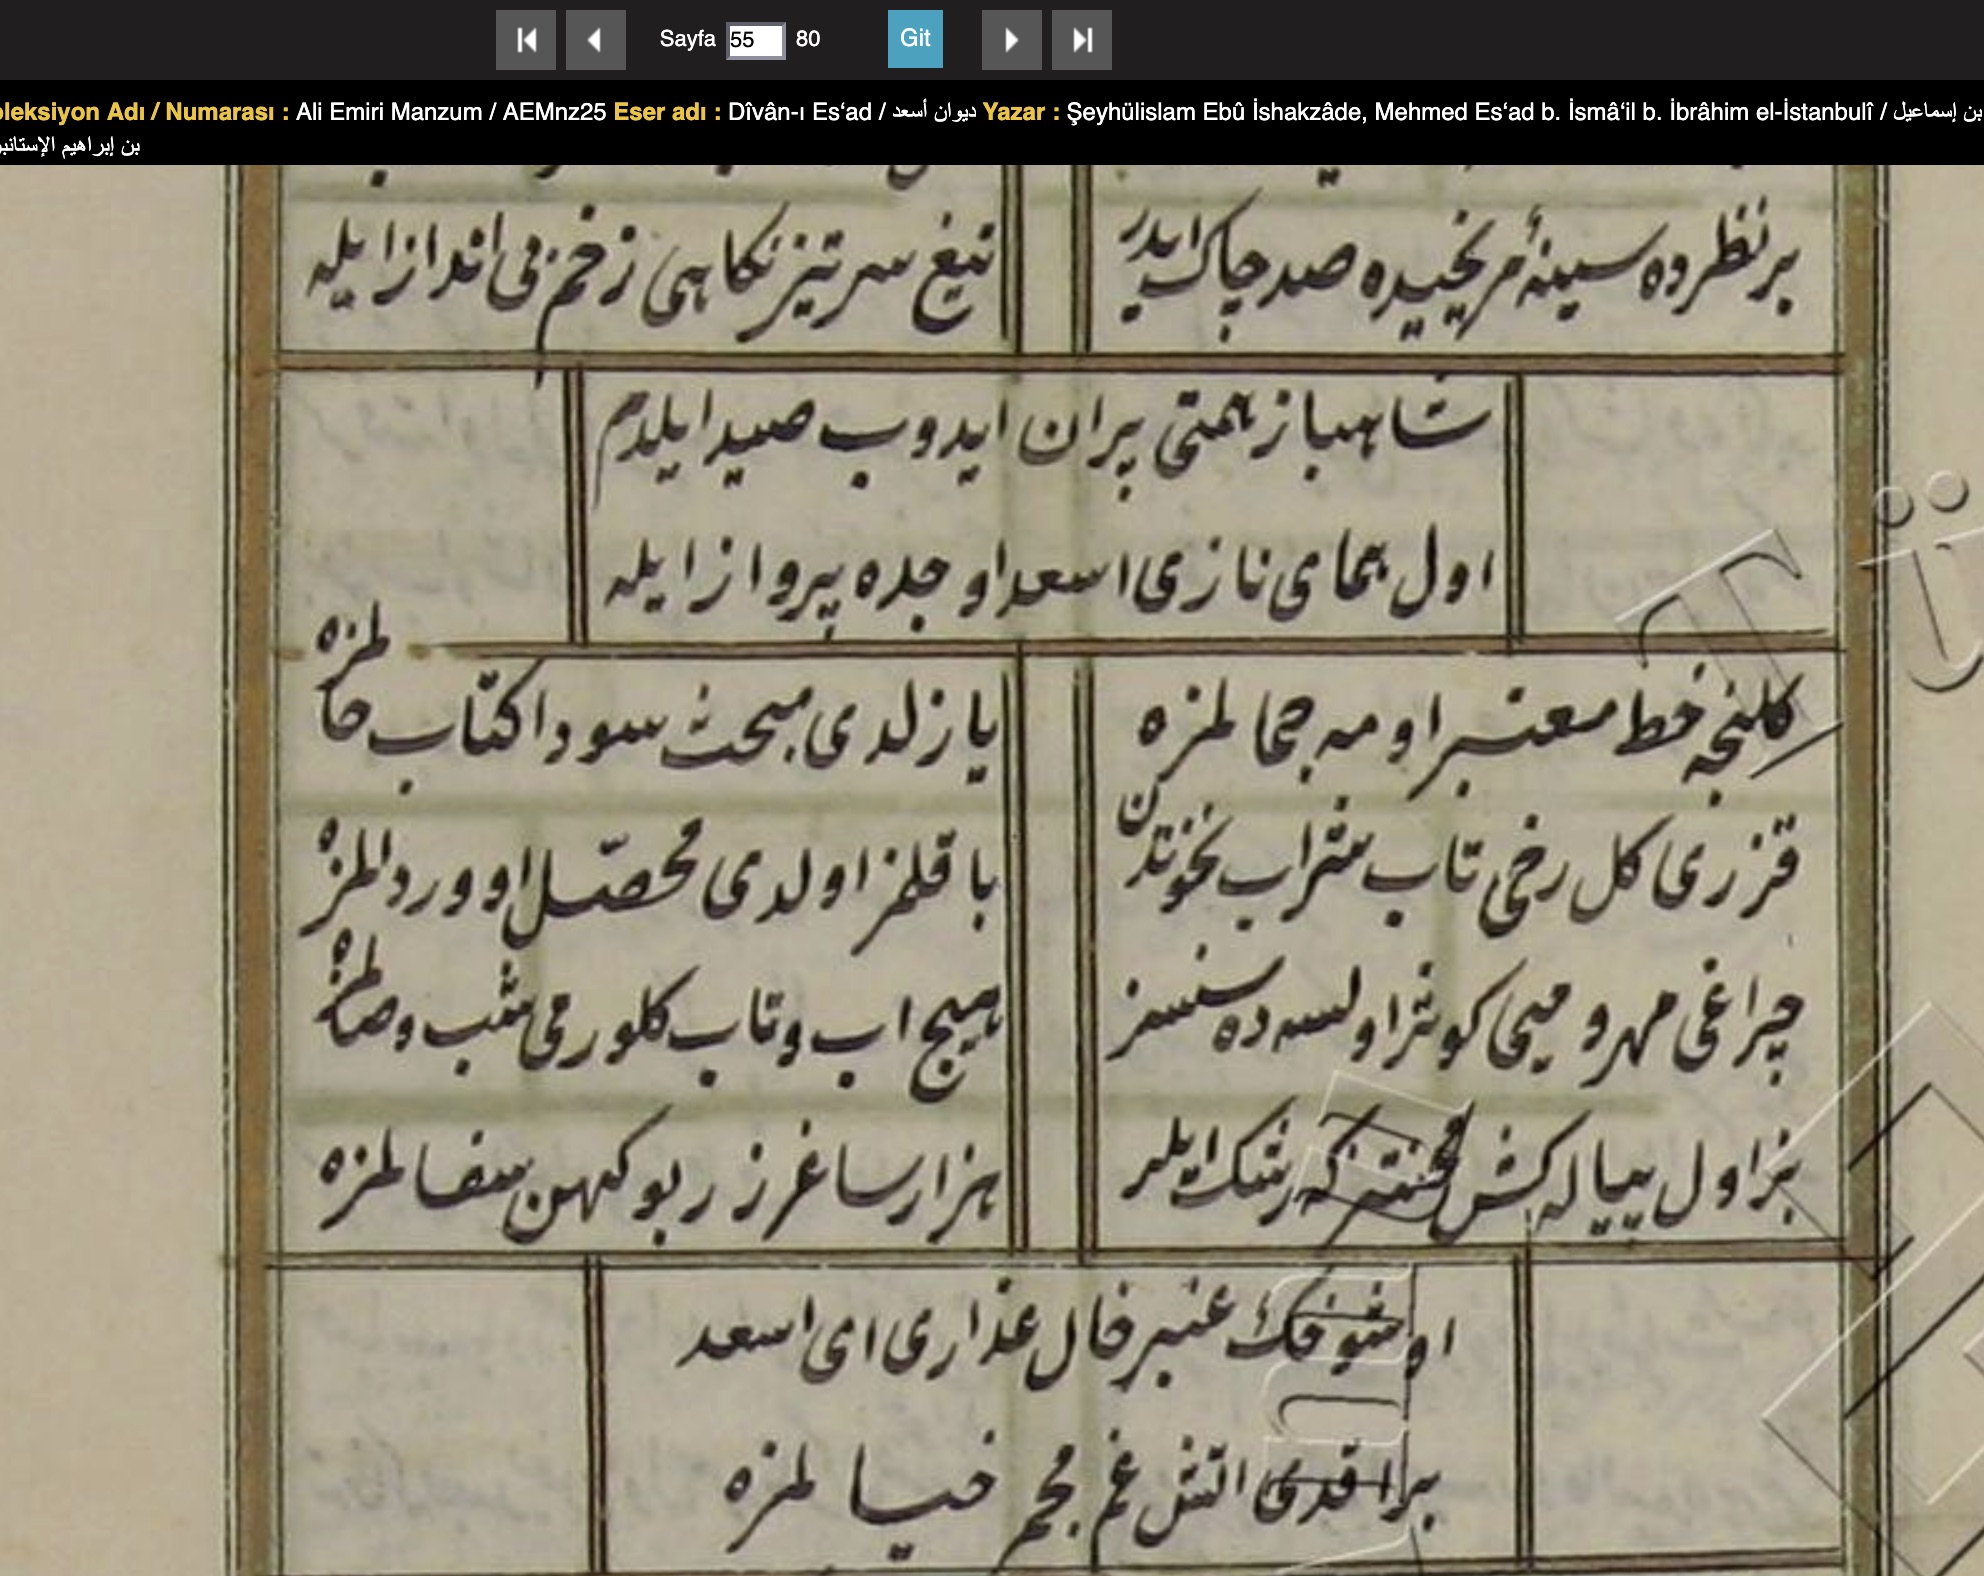 Sayfa 55 80 Git
oleksiyon Adı / Numarası : Ali Emiri Manzum / AEMnz25 Eser adı : Dîvân-ı Es‘ad / ديوان أسعد Yazar : Şeyhülislam Ebû İshakzâde, Mehmed Es‘ad b. İsmâ‘il b. İbrâhim el-İstanbulî / بن إسماعيل
بن إبراهيم الإستانبو
بر نظرده سینهٔ مریخیده صد چاک ایدر
تیغ سر تیز نکاهی زخم بی انداز ایله
شاهباز همتی پران ایدوب صید ایلدم
اول همای نازی اسعد اوجده پرواز ایله
کلنجه خط معنبر او مه جمالمزه
یازلدی مبحث سودا کتاب حالمزه
قزردی کل رخی تاب شراب نخوتدن
باقلمز اولدی محصّل او ورد المزه
چراغی مهر و میی کوثر اولسه ده سنسز
هیچ اب و تاب کلورمی شب وصالمزه
بز اول پیاله کش محنتز که رشک ایلر
هزار ساغر زر بو کهن سفالمزه
او شوخک عنبر خال عذاری ای اسعد
براقدی اتش غم مجمر خیالمزه